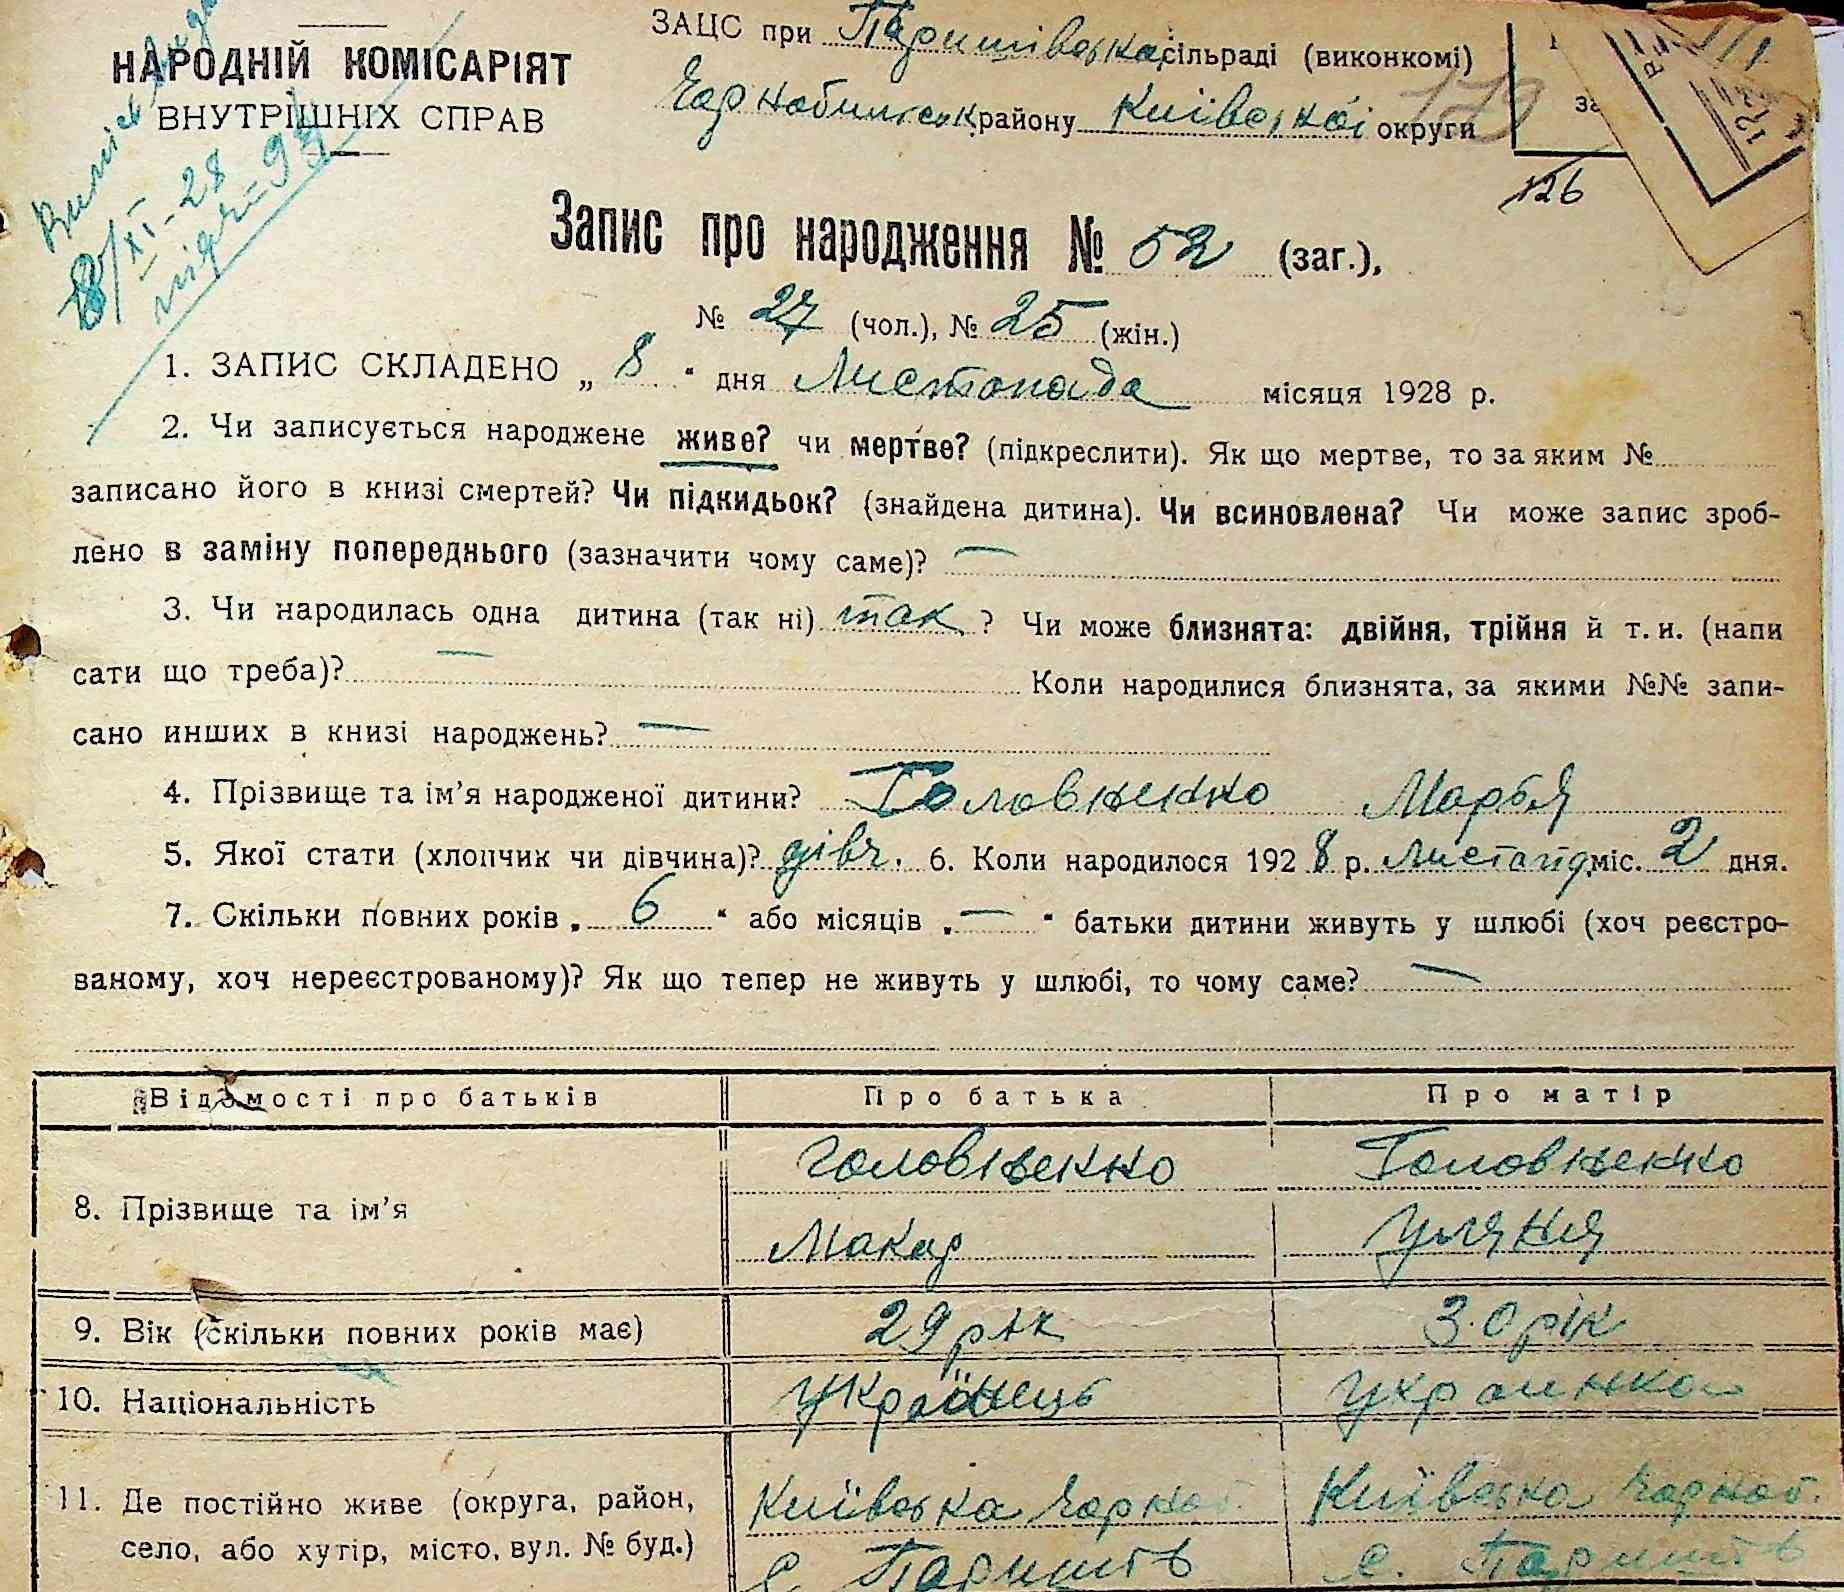 НАРОДНІЙ КОМІСАРІЯТ
ВНУТРІШНІХ СПРАВ
ЗАЦС при Паришівська сільраді (виконкомі)
Чорнобильск району Київської округи
179
126
8/XI-28
Запис про народження № 52 (заг.),
№ 27 (чол.), № 25 (жін.)
1. ЗАПИС СКЛАДЕНО „ 8 “ дня Листопада місяця 1928 р.
2. Чи записується народжене живе? чи мертве? (підкреслити). Як що мертве, то за яким №
записано його в книзі смертей? Чи підкидьок? (знайдена дитина). Чи всиновлена? Чи може запис зроб-
лено в заміну попереднього (зазначити чому саме)? —
3. Чи народилась одна дитина (так ні) так ? Чи може близнята: двійня, трійня й т. и. (напи
сати що треба)? — Коли народилися близнята, за якими №№ запи-
сано инших в книзі народжень? —
4. Прізвище та ім’я народженої дитини? Головненко Марья
5. Якої стати (хлопчик чи дівчина)? дівч. 6. Коли народилося 1928 р. Листопд. міс. 2 дня.
7. Скільки повних років „ 6 “ або місяців „ — “ батьки дитини живуть у шлюбі (хоч реєстро-
ваному, хоч нереєстрованому)? Як що тепер не живуть у шлюбі, то чому саме? —
Відомості про батьків Про батька Про матір
8. Прізвище та ім’я Головненко Головненко
Макар Уляня
9. Вік (скільки повних років має) 29 рік 30 рік
10. Національність Українець Украинка
11. Де постійно живе (округа, район, Київська Чорноб. Київська Чорноб.
село, або хутір, місто, вул. № буд.) с. Паришів с. Паришів